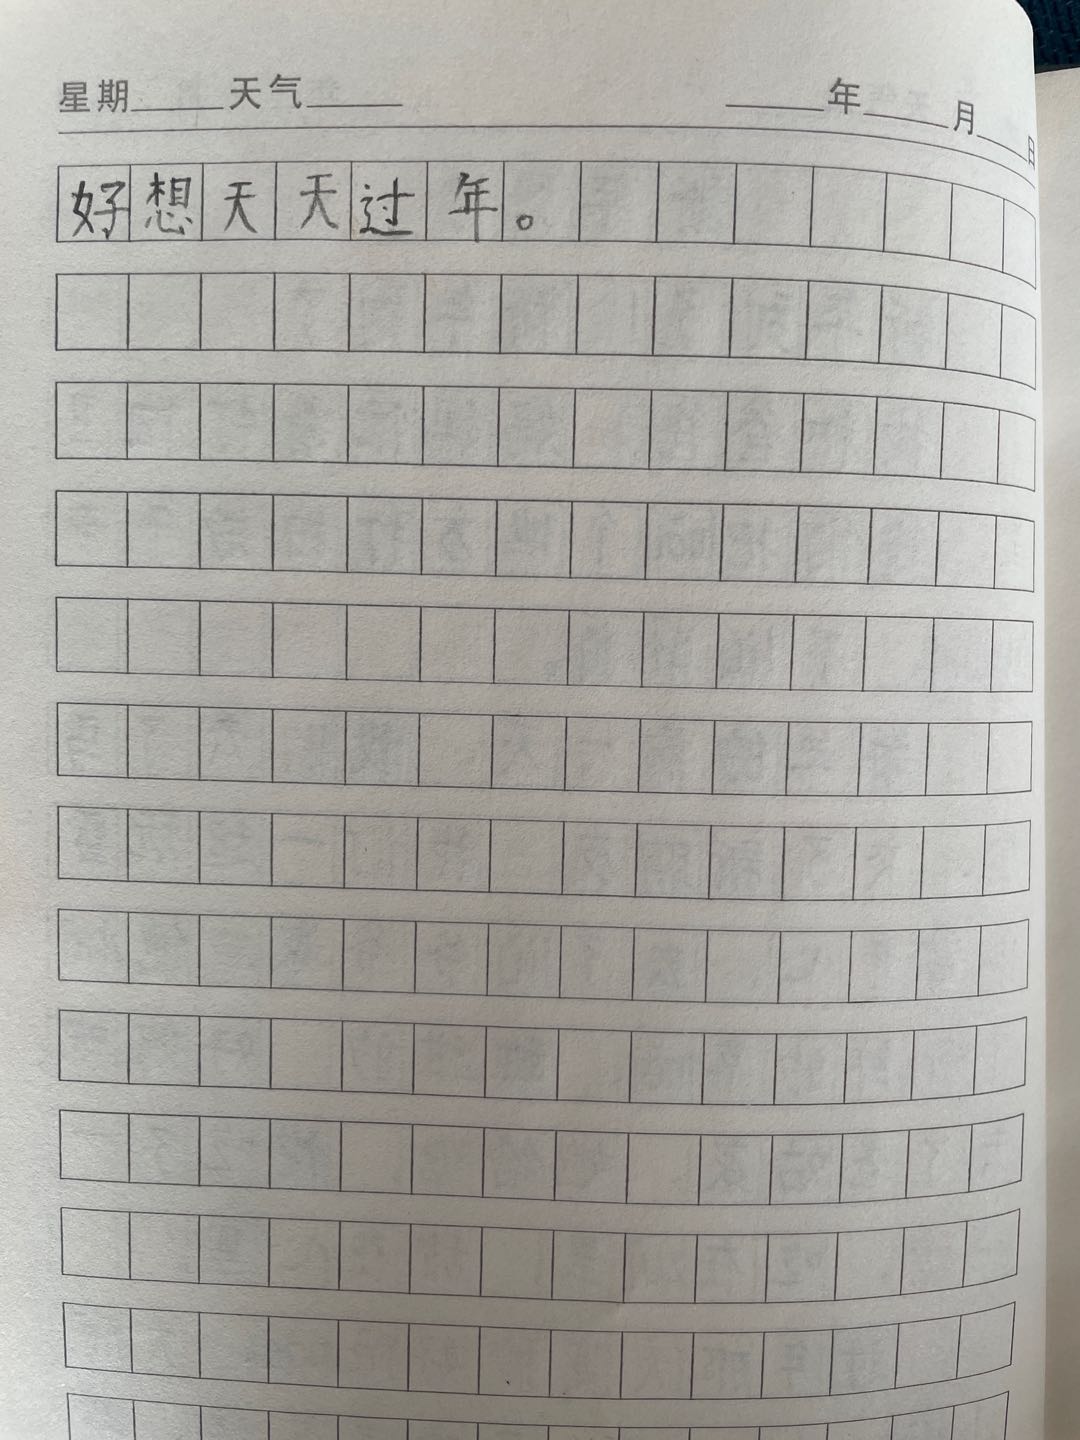 星期____天气____ ____年____月____日
好想天天过年。